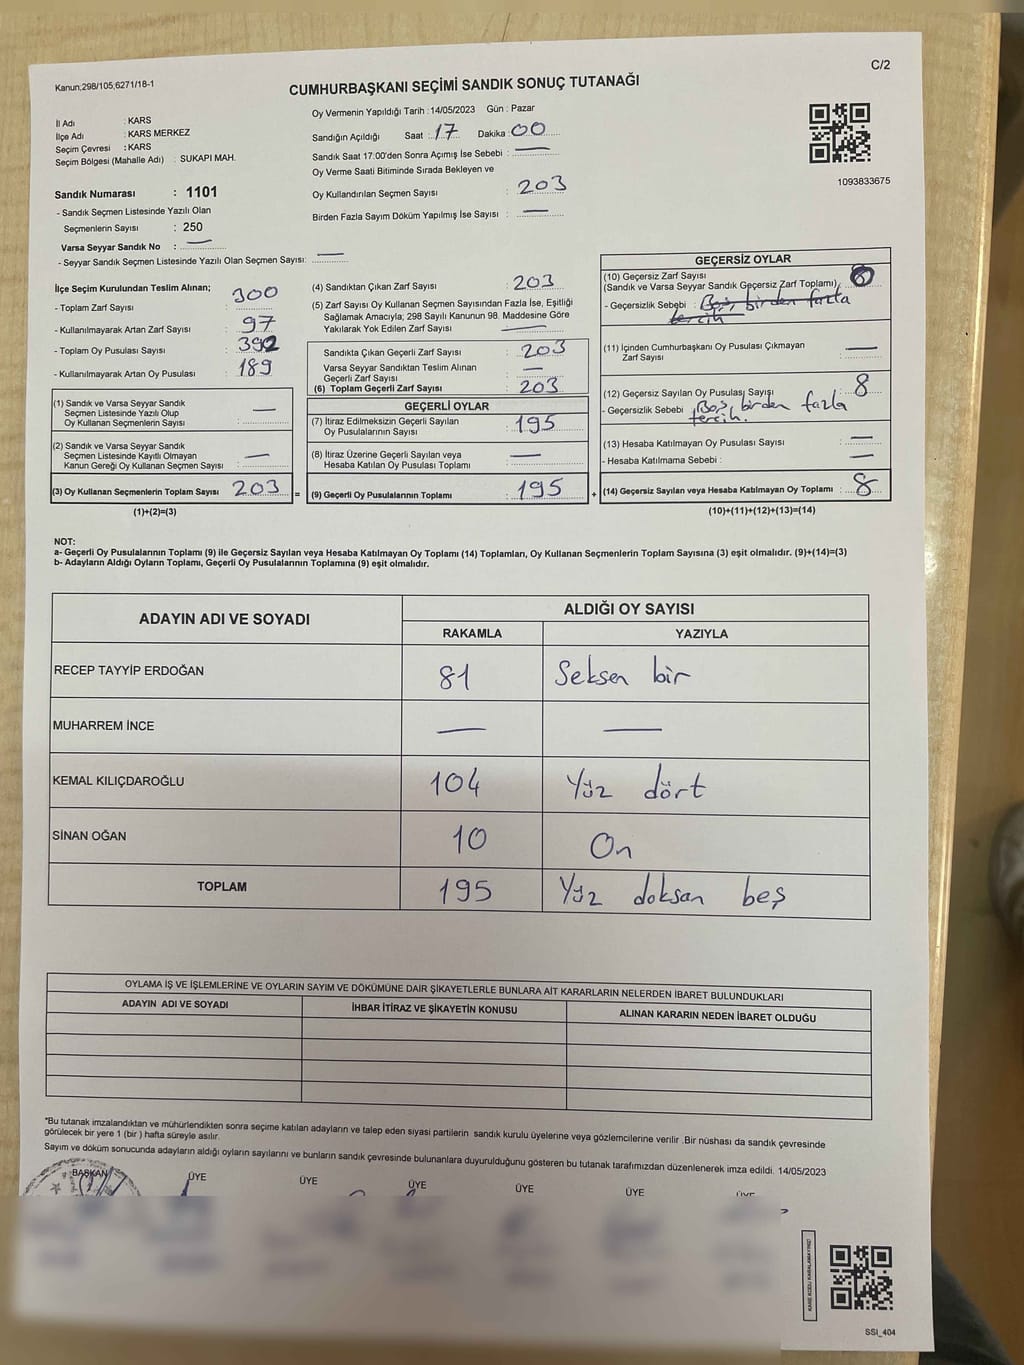 Kanun;298/105,6271/18-1
C/2
CUMHURBAŞKANI SEÇİMİ SANDIK SONUÇ TUTANAĞI
Oy Vermenin Yapıldığı Tarih :14/05/2023 Gün : Pazar
İl Adı : KARS
İlçe Adı : KARS MERKEZ
Seçim Çevresi : KARS
Seçim Bölgesi (Mahalle Adı) : SUKAPI MAH.
Sandığın Açıldığı Saat : 17 Dakika : 00
Sandık Saat 17:00'den Sonra Açımış İse Sebebi : —
Oy Verme Saati Bitiminde Sırada Bekleyen ve
Oy Kullandırılan Seçmen Sayısı : 203
Birden Fazla Sayım Döküm Yapılmış İse Sayısı : —
1093833675
Sandık Numarası : 1101
- Sandık Seçmen Listesinde Yazılı Olan
Seçmenlerin Sayısı : 250
Varsa Seyyar Sandık No : —
- Seyyar Sandık Seçmen Listesinde Yazılı Olan Seçmen Sayısı: —
İlçe Seçim Kurulundan Teslim Alınan;
- Toplam Zarf Sayısı : 300
- Kullanılmayarak Artan Zarf Sayısı : 97
- Toplam Oy Pusulası Sayısı : 392
- Kullanılmayarak Artan Oy Pusulası : 189
(1) Sandık ve Varsa Seyyar Sandık
Seçmen Listesinde Yazılı Olup
Oy Kullanan Seçmenlerin Sayısı : —
(2) Sandık ve Varsa Seyyar Sandık
Seçmen Listesinde Kayıtlı Olmayan
Kanun Gereği Oy Kullanan Seçmen Sayısı : —
(3) Oy Kullanan Seçmenlerin Toplam Sayısı 203 =
(1)+(2)=(3)
(4) Sandıktan Çıkan Zarf Sayısı : 203
(5) Zarf Sayısı Oy Kullanan Seçmen Sayısından Fazla İse, Eşitliği
Sağlamak Amacıyla; 298 Sayılı Kanunun 98. Maddesine Göre
Yakılarak Yok Edilen Zarf Sayısı : —
Sandıkta Çıkan Geçerli Zarf Sayısı : 203
Varsa Seyyar Sandıktan Teslim Alınan
Geçerli Zarf Sayısı : —
(6) Toplam Geçerli Zarf Sayısı : 203
GEÇERLİ OYLAR
(7) İtiraz Edilmeksizin Geçerli Sayılan
Oy Pusulalarının Sayısı : 195
(8) İtiraz Üzerine Geçerli Sayılan veya
Hesaba Katılan Oy Pusulası Toplamı : —
(9) Geçerli Oy Pusulalarının Toplamı : 195 +
GEÇERSİZ OYLAR
(10) Geçersiz Zarf Sayısı
(Sandık ve Varsa Seyyar Sandık Geçersiz Zarf Toplamı) :
- Geçersizlik Sebebi : Boş, birden fazla
tercih
(11) İçinden Cumhurbaşkanı Oy Pusulası Çıkmayan
Zarf Sayısı : —
(12) Geçersiz Sayılan Oy Pusulası Sayısı : 8
- Geçersizlik Sebebi : Boş, birden fazla
tercih.
(13) Hesaba Katılmayan Oy Pusulası Sayısı : —
- Hesaba Katılmama Sebebi : —
(14) Geçersiz Sayılan veya Hesaba Katılmayan Oy Toplamı : 8
(10)+(11)+(12)+(13)=(14)
NOT:
a- Geçerli Oy Pusulalarının Toplamı (9) ile Geçersiz Sayılan veya Hesaba Katılmayan Oy Toplamı (14) Toplamları, Oy Kullanan Seçmenlerin Toplam Sayısına (3) eşit olmalıdır. (9)+(14)=(3)
b- Adayların Aldığı Oyların Toplamı, Geçerli Oy Pusulalarının Toplamına (9) eşit olmalıdır.
ADAYIN ADI VE SOYADI ALDIĞI OY SAYISI
RAKAMLA YAZIYLA
RECEP TAYYİP ERDOĞAN 81 Seksen bir
MUHARREM İNCE — —
KEMAL KILIÇDAROĞLU 104 Yüz dört
SİNAN OĞAN 10 On
TOPLAM 195 Yüz doksan beş
OYLAMA İŞ VE İŞLEMLERİNE VE OYLARIN SAYIM VE DÖKÜMÜNE DAİR ŞİKAYETLERLE BUNLARA AİT KARARLARIN NELERDEN İBARET BULUNDUKLARI
ADAYIN ADI VE SOYADI İHBAR İTİRAZ VE ŞİKAYETİN KONUSU ALINAN KARARIN NEDEN İBARET OLDUĞU
*Bu tutanak imzalandıktan ve mühürlendikten sonra seçime katılan adayların ve talep eden siyasi partilerin sandık kurulu üyelerine veya gözlemcilerine verilir .Bir nüshası da sandık çevresinde
görülecek bir yere 1 (bir ) hafta süreyle asılır.
Sayım ve döküm sonucunda adayların aldığı oyların sayılarını ve bunların sandık çevresinde bulunanlara duyurulduğunu gösteren bu tutanak tarafımızdan düzenlenerek imza edildi. 14/05/2023
BAŞKAN ÜYE ÜYE ÜYE ÜYE ÜYE ÜYE
KARE KODU KARALAMAYINIZ!
SSI_404